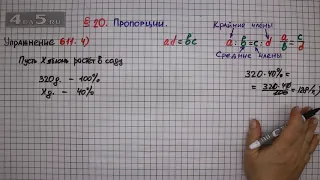 § 20. Пропорции.
Упражнение 611. 4)
ad = bc
Крайние члены
a : b = c : d
a/b = c/d
Средние члены
Пусть X яблонь растёт в саду
320д. – 100%
Xд. – 40%
320·40% =
= 320·40/100 = 128